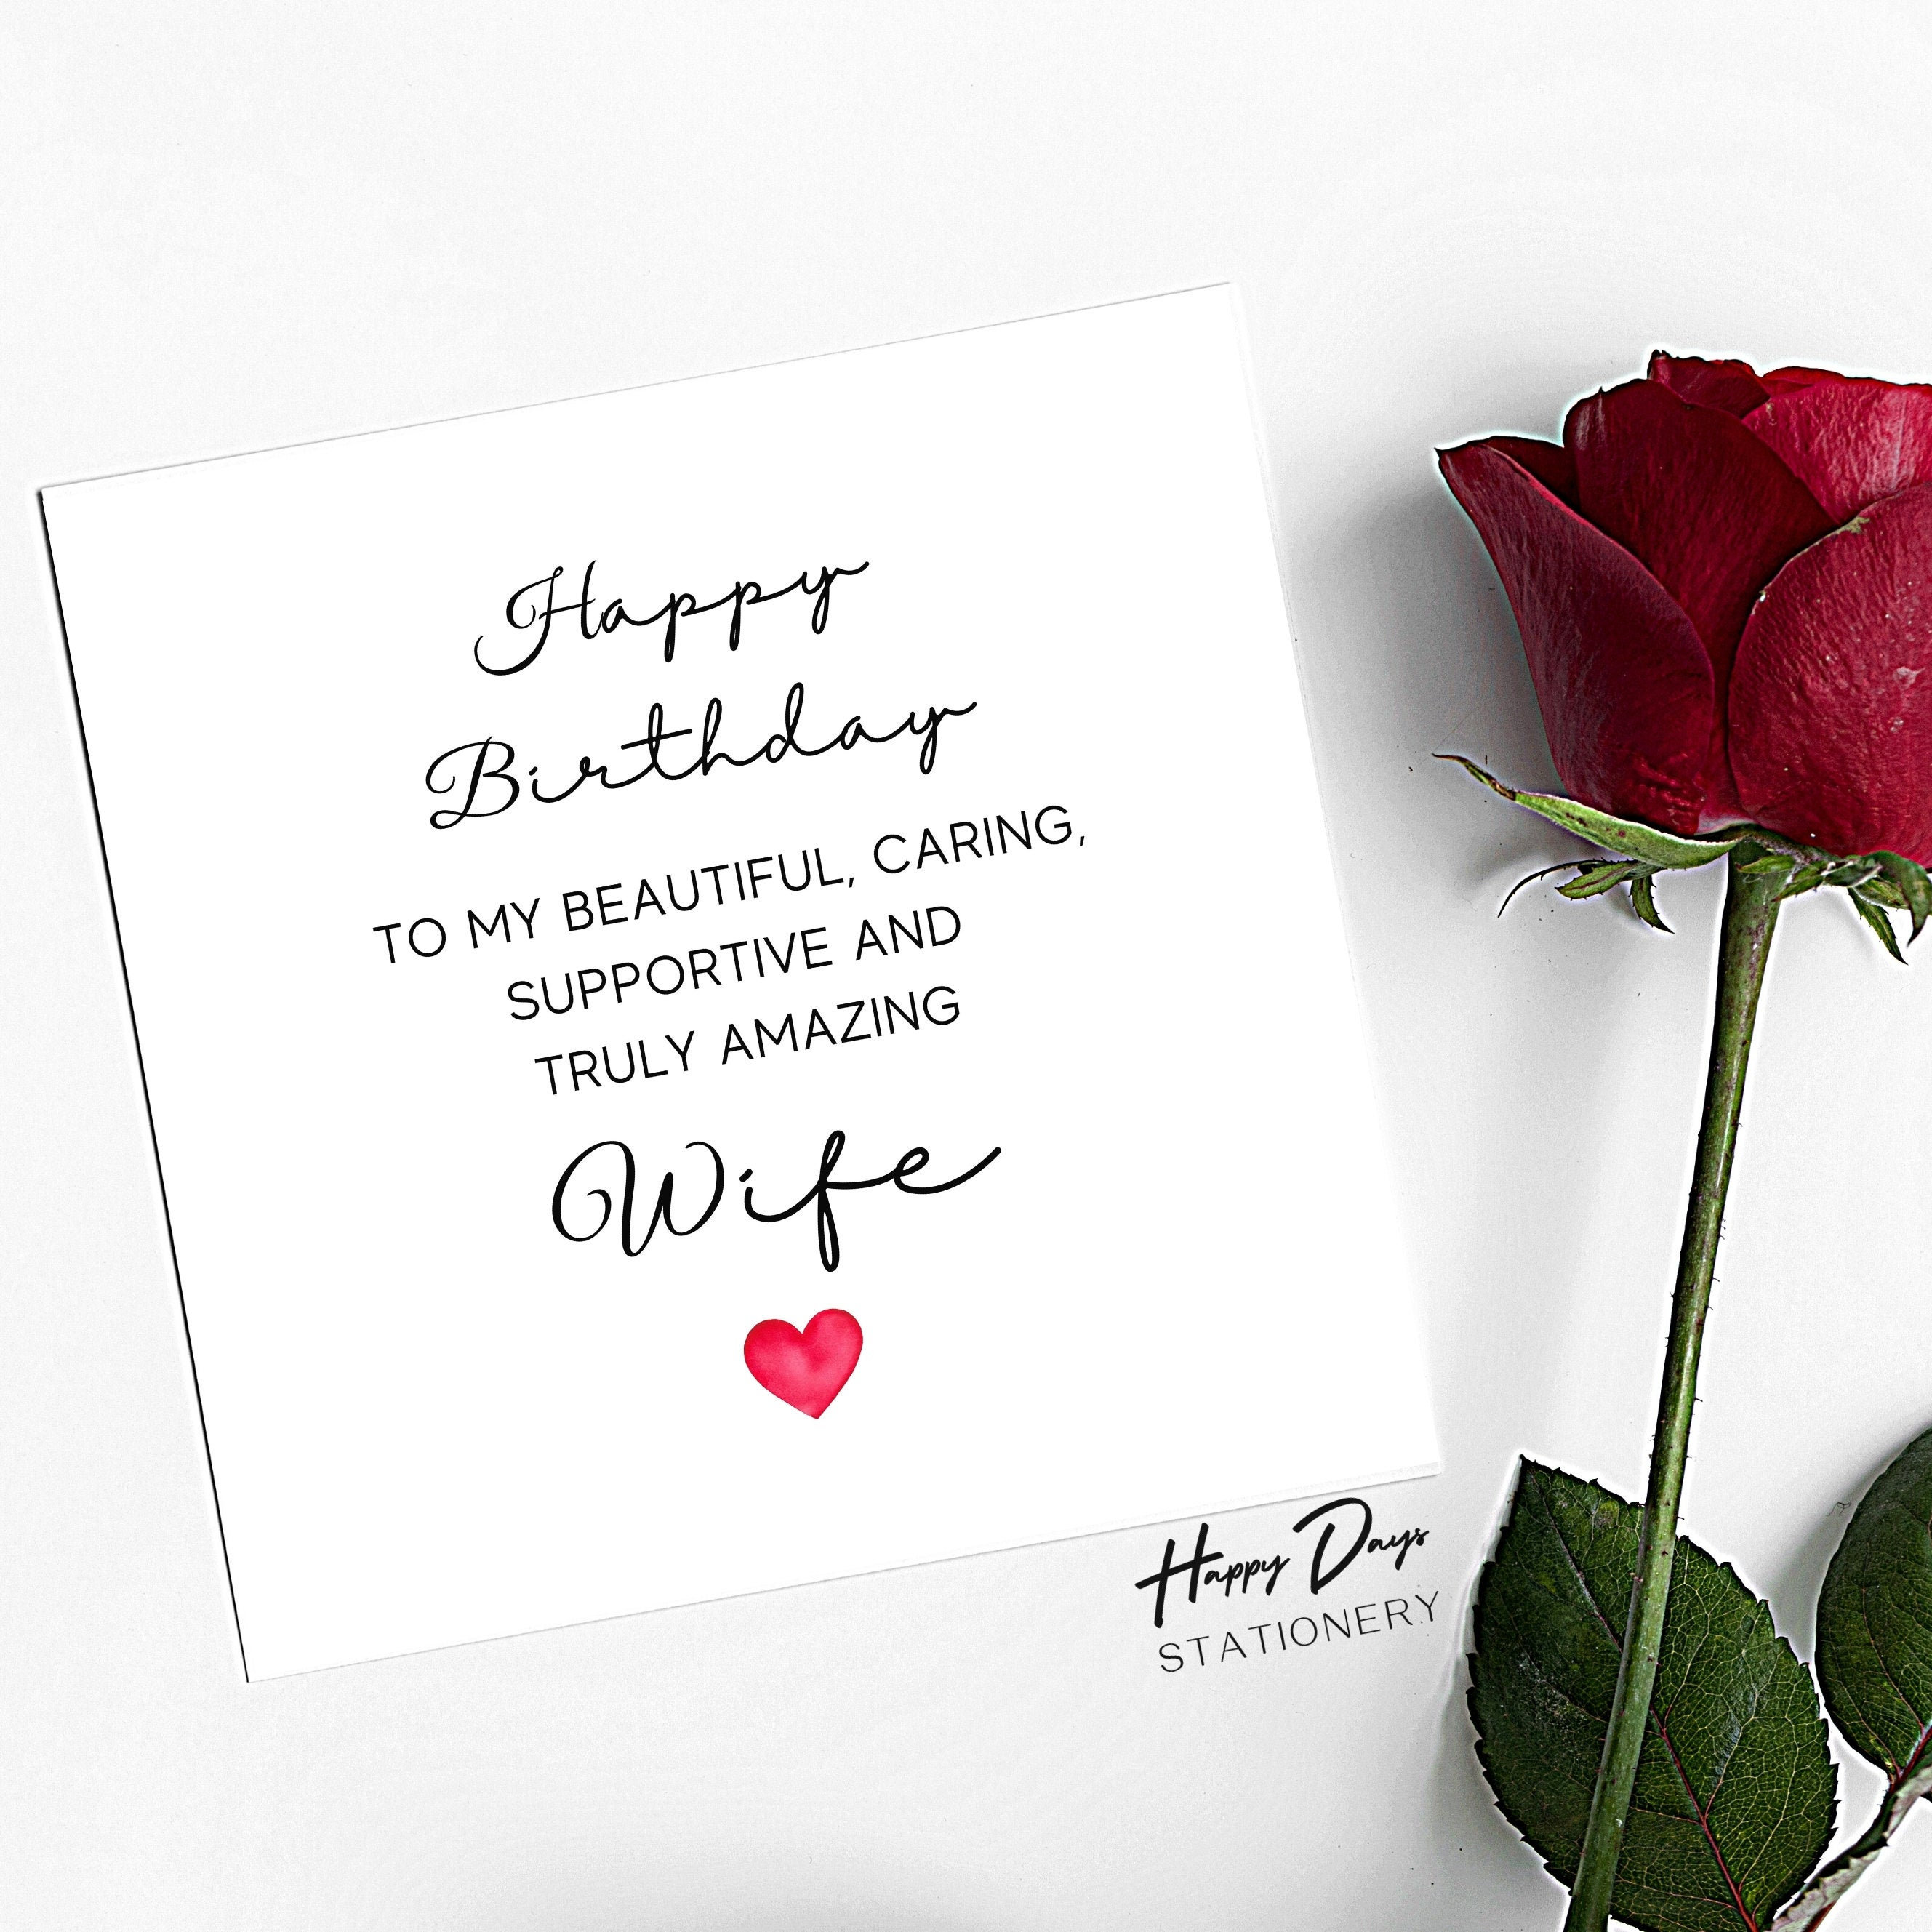 Happy
Birthday
TO MY BEAUTIFUL, CARING,
SUPPORTIVE AND
TRULY AMAZING
Wife
Happy Days
STATIONERY